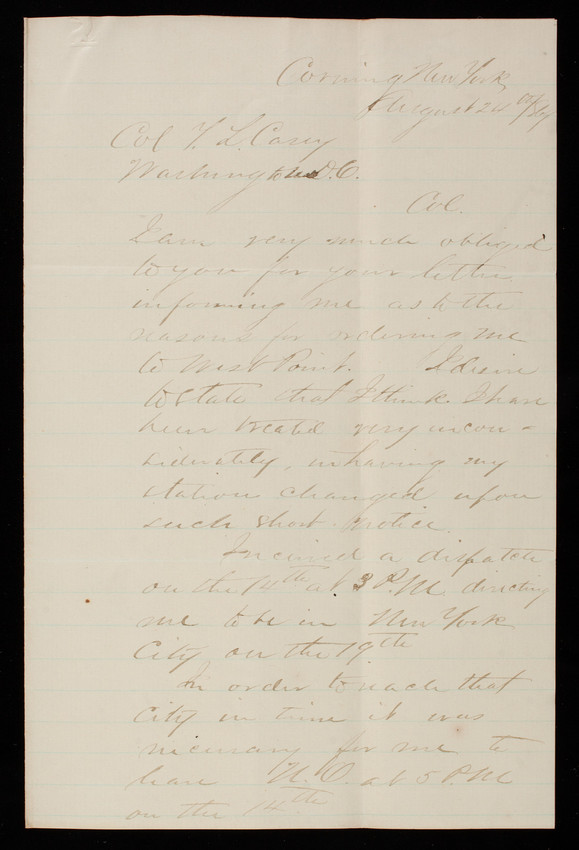 Corning New York
August 24th
Col T. L. Casey
Washington D.C.
Col.
I am very much obliged
to you for your letter
informing me as to the
reasons for ordering me
to West Point. I desire
to state that I think I have
been treated very incon-
siderately, in having my
station changed upon
such short notice.
I received a dispatch
on the 14th at 3 P.M. directing
me to be in New York
City on the 19th
In order to reach that
City in time it was
necessary for me to
leave N.O. at 5 P.M
on the 14th